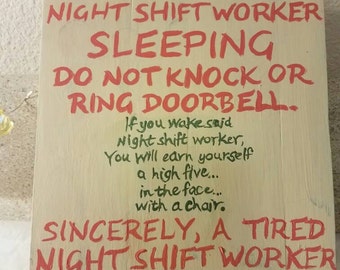 NIGHT SHIFT WORKER
SLEEPING
DO NOT KNOCK OR
RING DOORBELL.
If you wake said
Night shift worker,
You will earn yourself
a high five...
in the face...
with a chair.
SINCERELY, A TIRED
NIGHT SHIFT WORKER